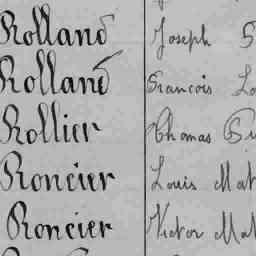 Rolland Joseph
Rolland Francois
Rollier Thomas
Roncier Louis
Roncier Victor